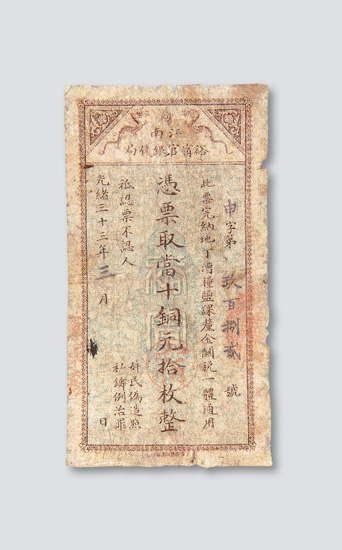 江南
裕甯官銀錢局
申字第玖百捌貳號
此票完納地丁漕糧鹽課釐金關稅一體通用
憑票取當十銅元拾枚整
祗認票不認人
奸民僞造照
私鑄例治罪
光緒三十三年三月 日